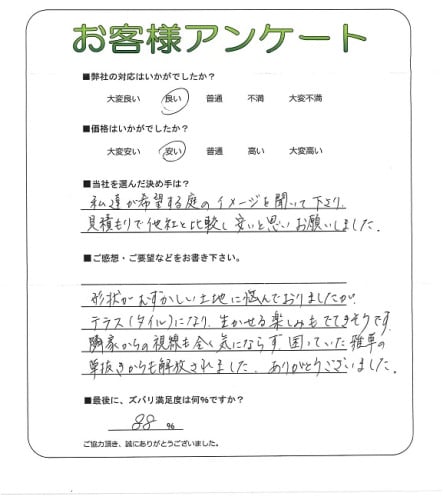 お客様アンケート
■弊社の対応はいかがでしたか?
大変良い 良い 普通 不満 大変不満
■価格はいかがでしたか?
大変安い 安い 普通 高い 大変高い
■当社を選んだ決め手は?
私達が希望する庭のイメージを聞いて下さり、
見積もりで他社と比較し安いと思いお願いしました。
■ご感想・ご要望などをお書き下さい。
形状がむずかしい土地に悩んでおりましたが、
テラス(タイル)になり、生かせる楽しみもでてきそうです。
隣家からの視線も全く気にならず、困っていた雑草の
草抜きからも解放されました。ありがとうございました。
■最後に、ズバリ満足度は何%ですか?
88 %
ご協力頂き、誠にありがとうございました。